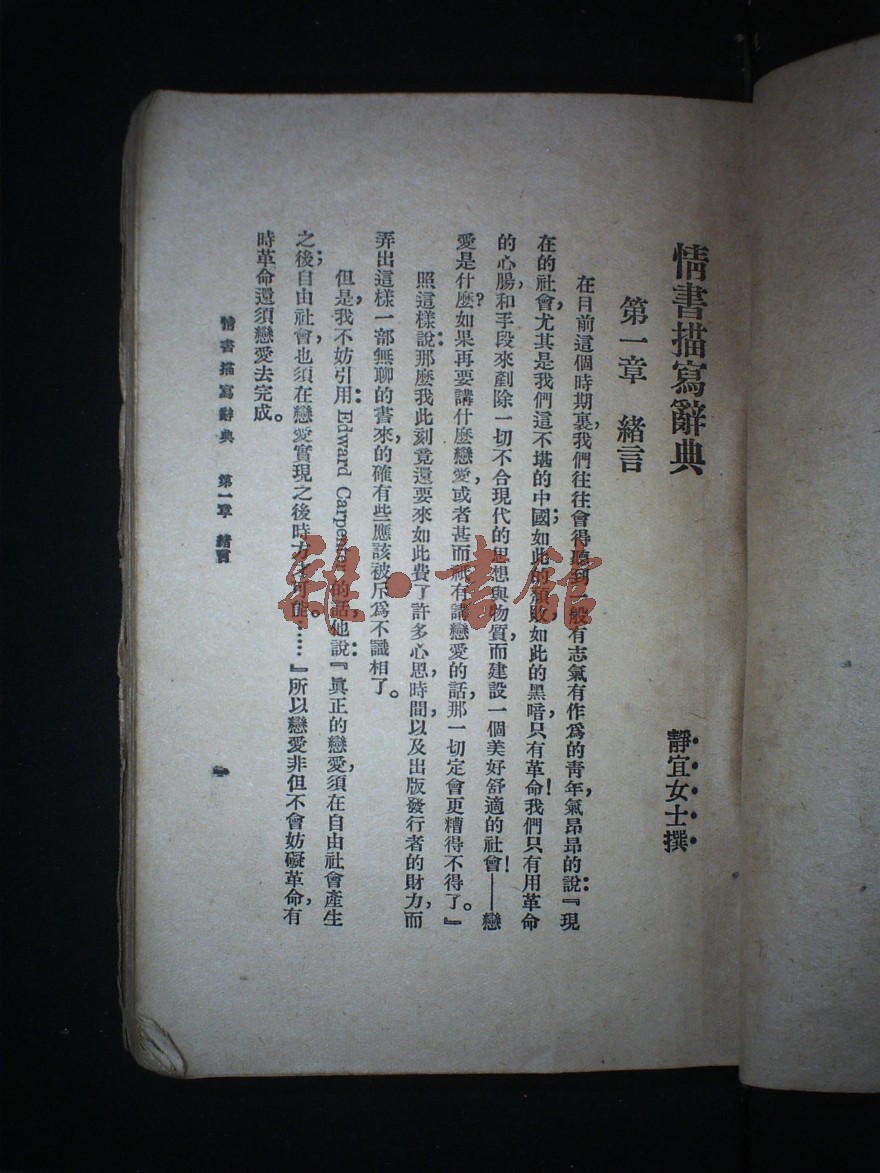 情書描寫辭典
靜宜女士撰
第一章 緒言
在目前這個時期裏，我們往往會得聽到一般有志氣有作爲的靑年，氣昂昂的說：『現
在的社會，尤其是我們這不堪的中國；如此的頹敗，如此的黑暗，只有革命！我們只有用革命
的心腸，和手段來剷除一切不合現代的思想與物質，而建設一個美好舒適的社會！——戀
愛是什麼？如果再要講什麼戀愛，或者甚而祇有講戀愛的話，那一切定會更糟得不得了。』
照這樣說：那麼我此刻竟還要來如此費了許多心思，時間，以及出版發行者的財力，而
弄出這樣一部無聊的書來，的確有些應該被斥爲不識相了。
但是，我不妨引用：Edward Carpenter 的話，他說：『眞正的戀愛，須在自由社會產生
之後；自由社會，也須在戀愛實現之後時方才可能。……』所以戀愛非但不會妨礙革命，有
時革命還須戀愛去完成。
情書描寫辭典 第一章 緒言
一
雜·書館